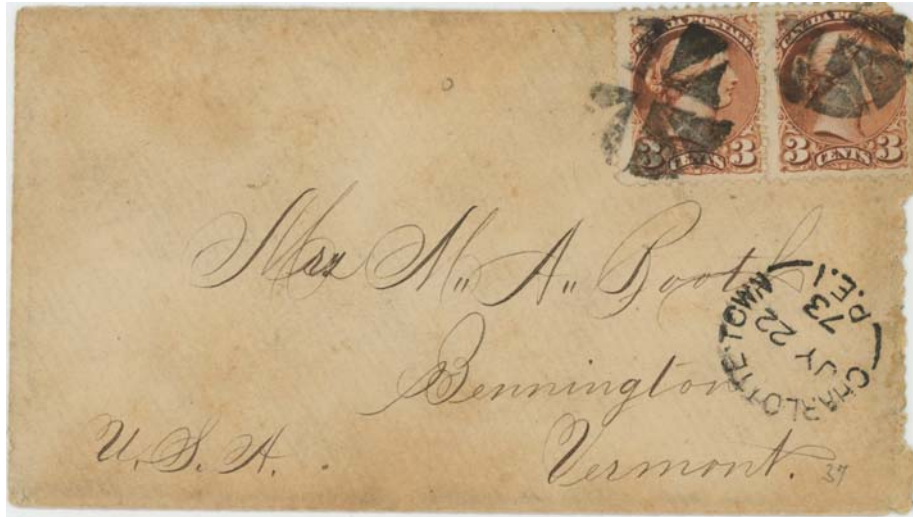 CANADA POSTAGE
3 CENTS 3
CANADA POSTAGE
3 CENTS 3
Mrs M. A. Booth
Bennington
Vermont.
U. S. A.
CHARLOTTE-TOWN
JY 22
73
P.E.I.
37